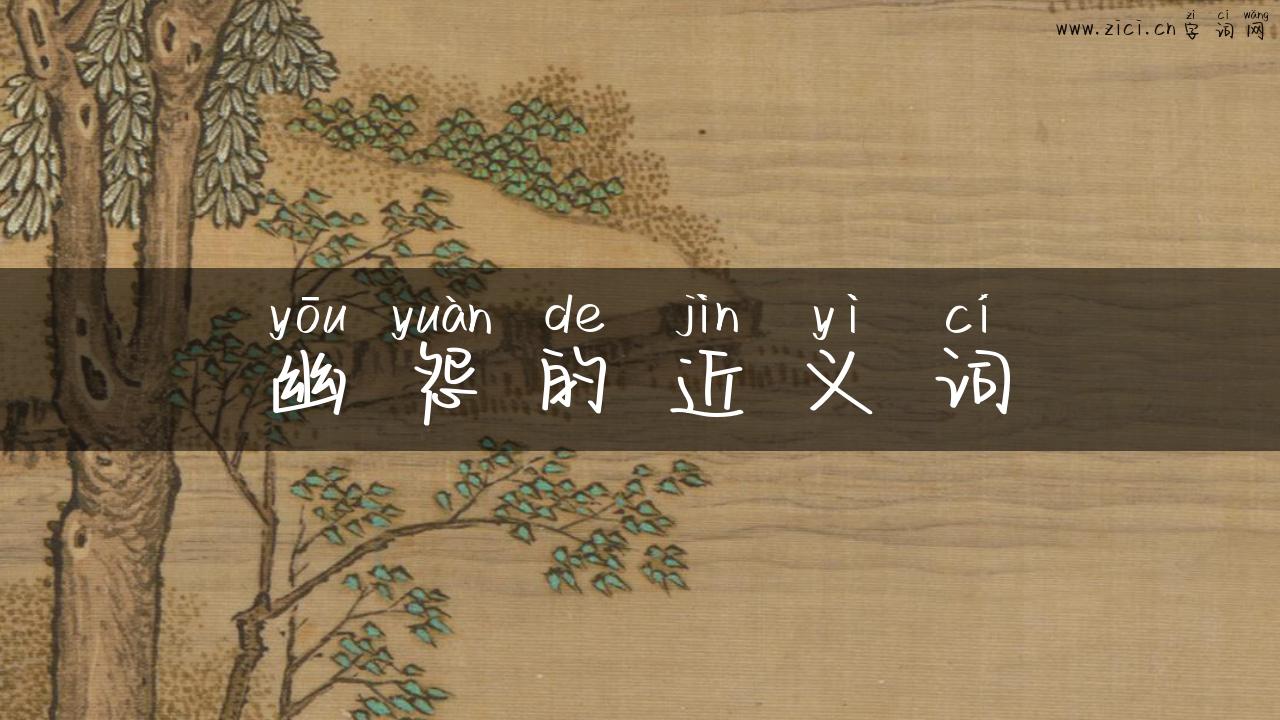 zì cí wǎng
www.zici.cn 字词网
yōu yuàn de jìn yì cí
幽怨的近义词